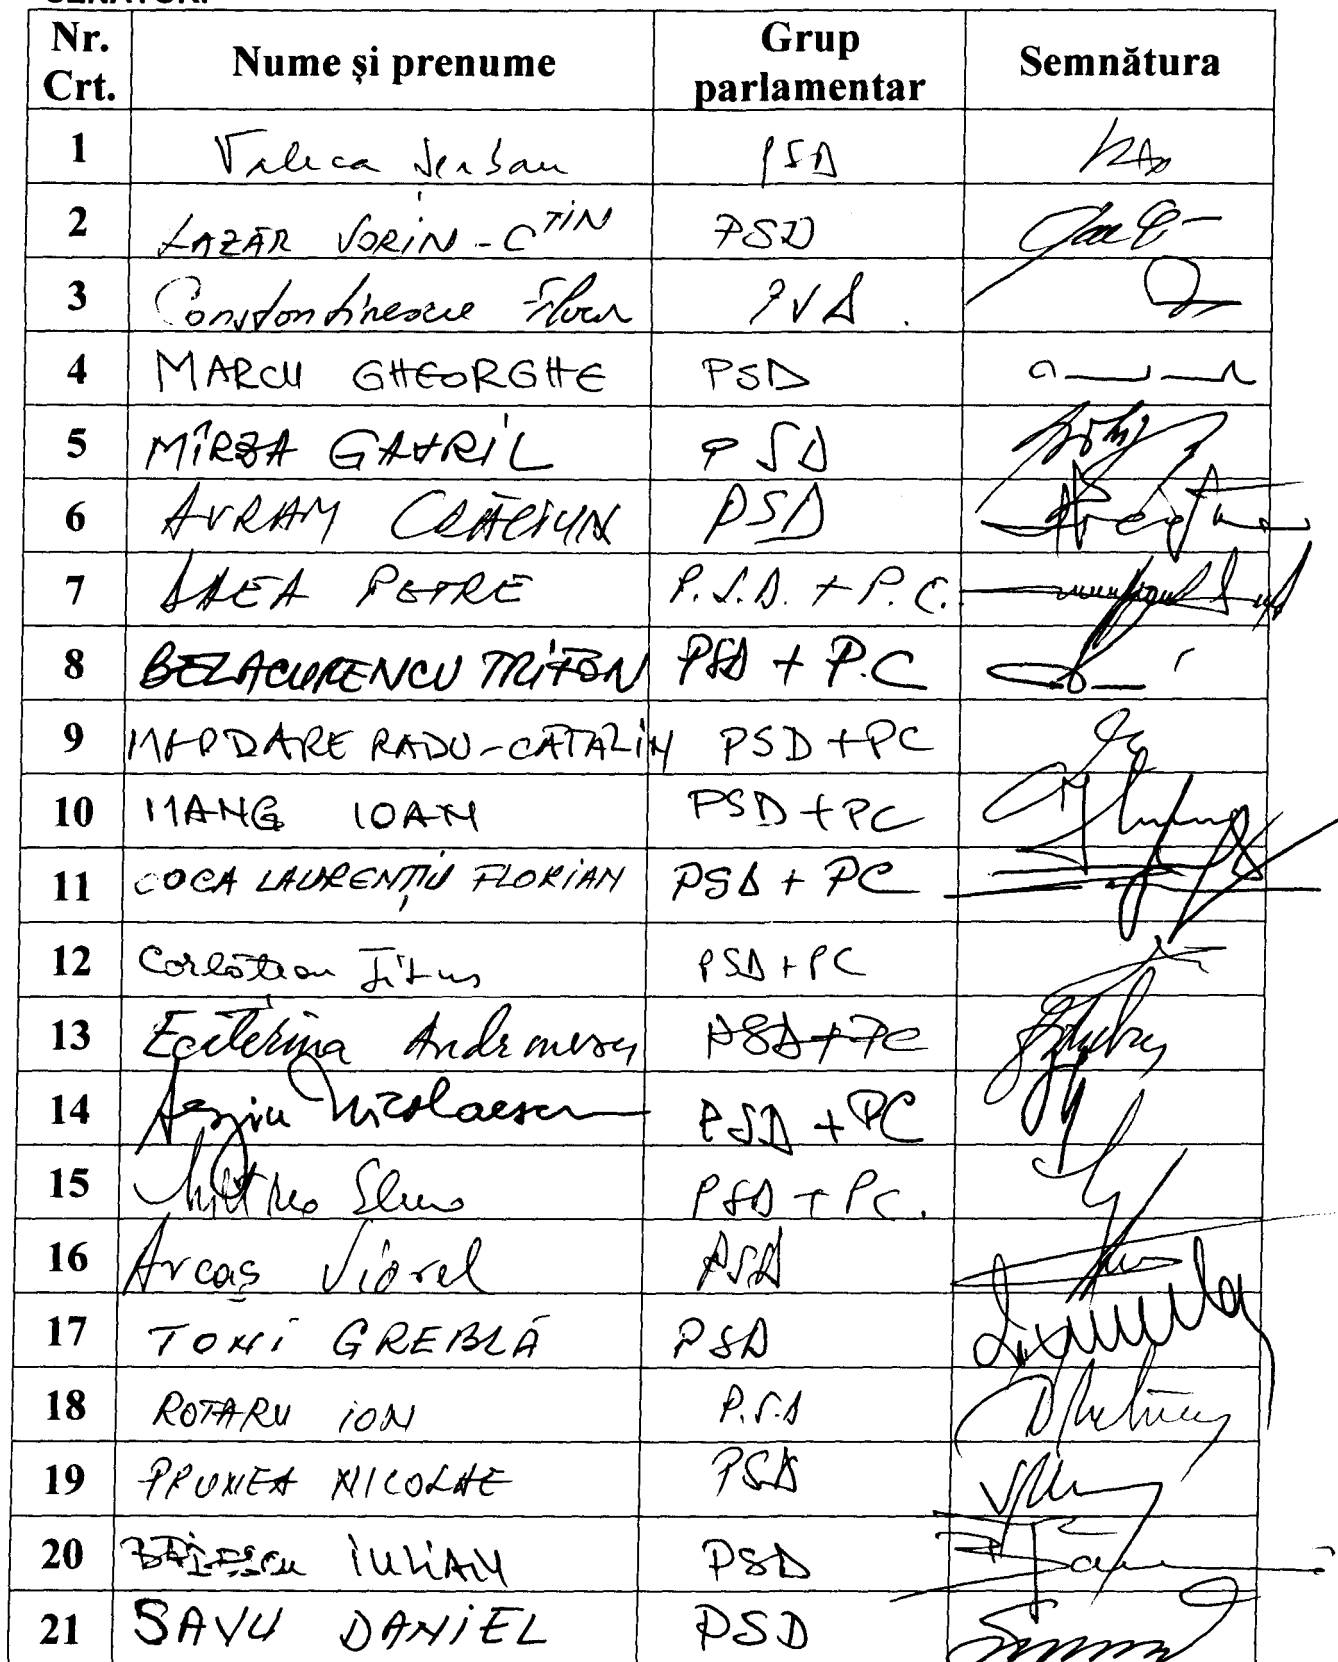 SENATORI
Nr. Crt. Nume și prenume Grup parlamentar Semnătura
1 Valeca Serban PSD
2 LAZĂR SORIN-CTIN PSD
3 Constantinescu Florin PSD
4 MARCU GHEORGHE PSD
5 MÎRZA GAVRIL PSD
6 AVRAM CRĂCIUN PSD
7 DAEA PETRE P.S.D. + P.C.
8 BELACURENCU TRIFON PSD + P.C
9 MARDARE RADU-CĂTĂLIN PSD+PC
10 MANG IOAN PSD+PC
11 COCA LAURENȚIU FLORIAN PSD + PC
12 Corlățean Titus PSD+PC
13 Ecaterina Andronescu PSD+PC
14 Sergiu Nicolaescu PSD +PC
15 PSD + PC.
16 Arcaș Viorel PSD
17 TONI GREBLĂ PSD
18 ROTARU ION P.S.D
19 PRUNEA NICOLAE PSD
20 IULIAN PSD
21 SAVU DANIEL PSD